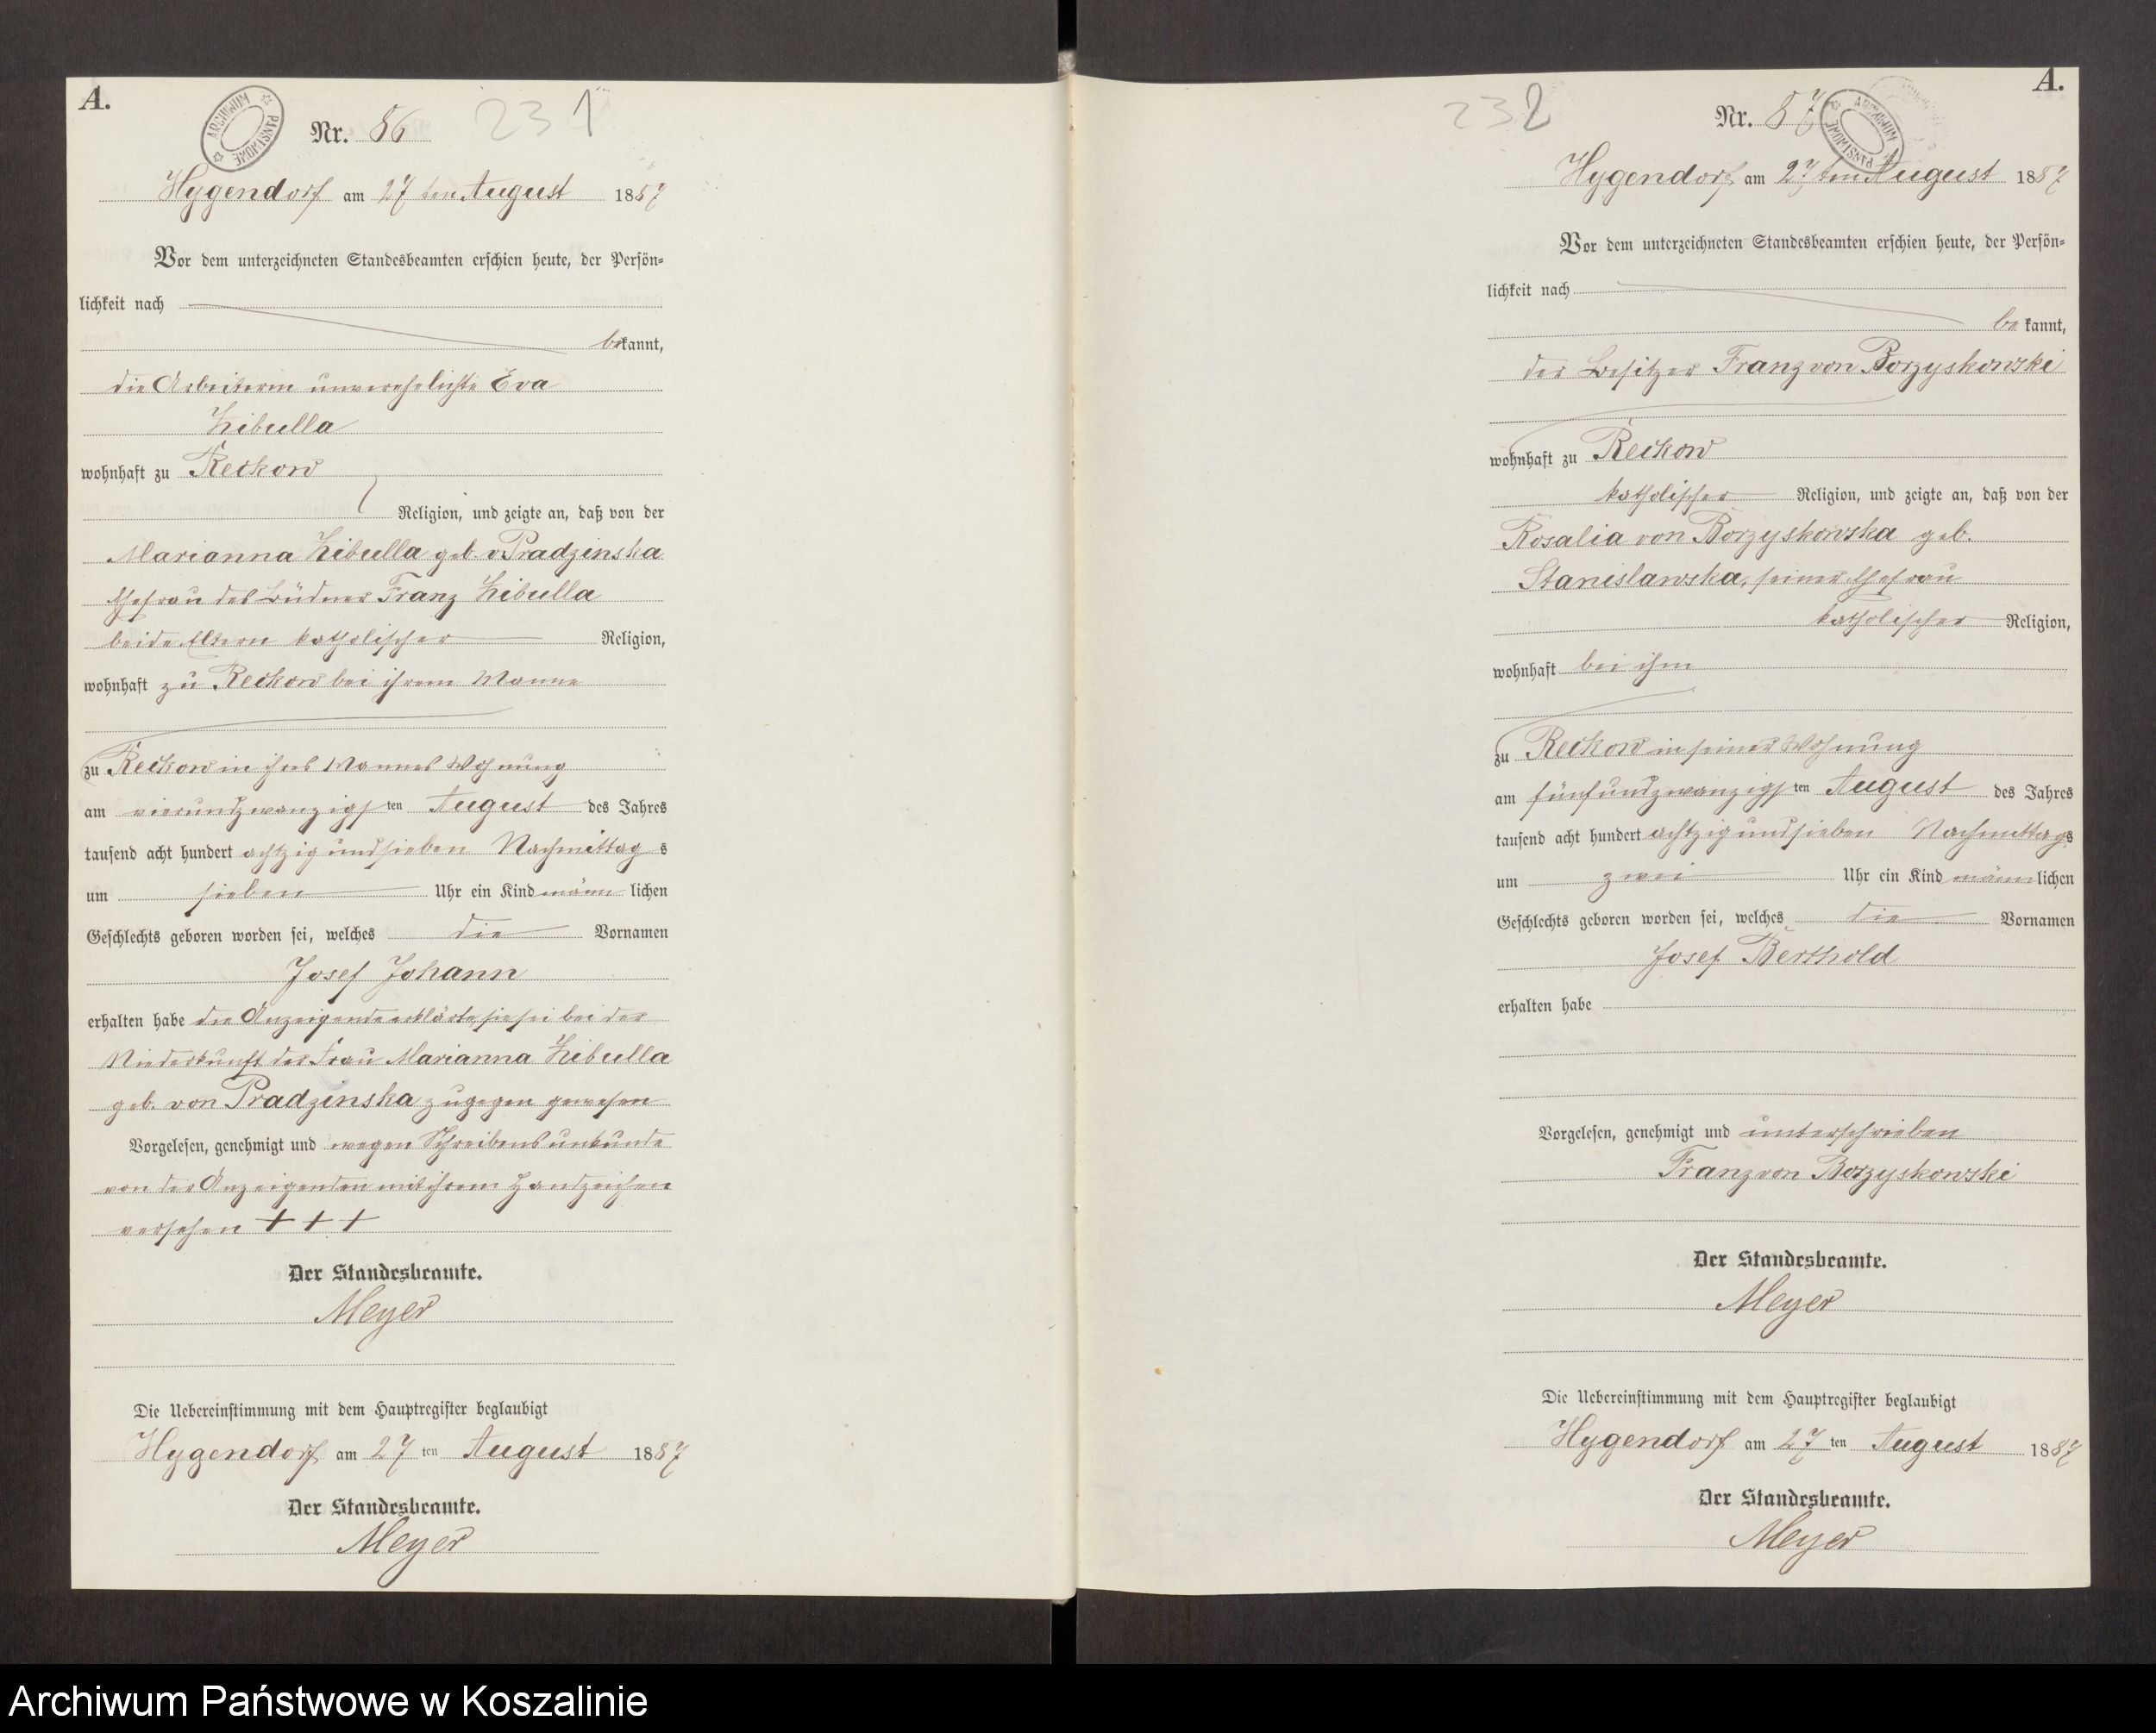 A.
ARCHIWUM PAŃSTWOWE
Nr. 86
231
Hygendorf am 27 ten August 1887
Vor dem unterzeichneten Standesbeamten erschien heute, der Persön-
lichkeit nach
bekannt,
die Arbeiterin unverehelichte Eva
Zibulla
wohnhaft zu Reckow
Religion, und zeigte an, daß von der
Marianna Zibulla geb. v. Pradzinska
Ehefrau des Büdner Franz Zibulla
beide Eltern katholischer Religion,
wohnhaft zu Reckow bei ihrem Manne
zu Reckow in ihres Mannes Wohnung
am vierundzwanzigsten August des Jahres
tausend acht hundert achtzig und sieben Nachmittags
um sieben Uhr ein Kind männlichen
Geschlechts geboren worden sei, welches die Vornamen
Josef Johann
erhalten habe die Anzeigende erklärte, sie sei bei der
Niederkunft der Frau Marianna Zibulla
geb. von Pradzinska zugegen gewesen
Vorgelesen, genehmigt und wegen Schreibensunkunde
von der Anzeigenden mit ihrem Handzeichen
versehen + + +
Der Standesbeamte.
Meyer
Die Uebereinstimmung mit dem Hauptregister beglaubigt
Hygendorf am 27 ten August 1887
Der Standesbeamte.
Meyer
A.
232
Nr. 87
ARCHIWUM PAŃSTWOWE
Hygendorf am 27 ten August 1887
Vor dem unterzeichneten Standesbeamten erschien heute, der Persön-
lichkeit nach
bekannt,
der Besitzer Franz von Borzyskowski
wohnhaft zu Reckow
katholischer Religion, und zeigte an, daß von der
Rosalia von Borzyskowska geb.
Stanislawska, seiner Ehefrau
katholischer Religion,
wohnhaft bei ihm
zu Reckow in seiner Wohnung
am fünfundzwanzigsten August des Jahres
tausend acht hundert achtzig und sieben Nachmittags
um zwei Uhr ein Kind männlichen
Geschlechts geboren worden sei, welches die Vornamen
Josef Berthold
erhalten habe
Vorgelesen, genehmigt und unterschrieben
Franz von Borzyskowski
Der Standesbeamte.
Meyer
Die Uebereinstimmung mit dem Hauptregister beglaubigt
Hygendorf am 27 ten August 1887
Der Standesbeamte.
Meyer
Archiwum Państwowe w Koszalinie